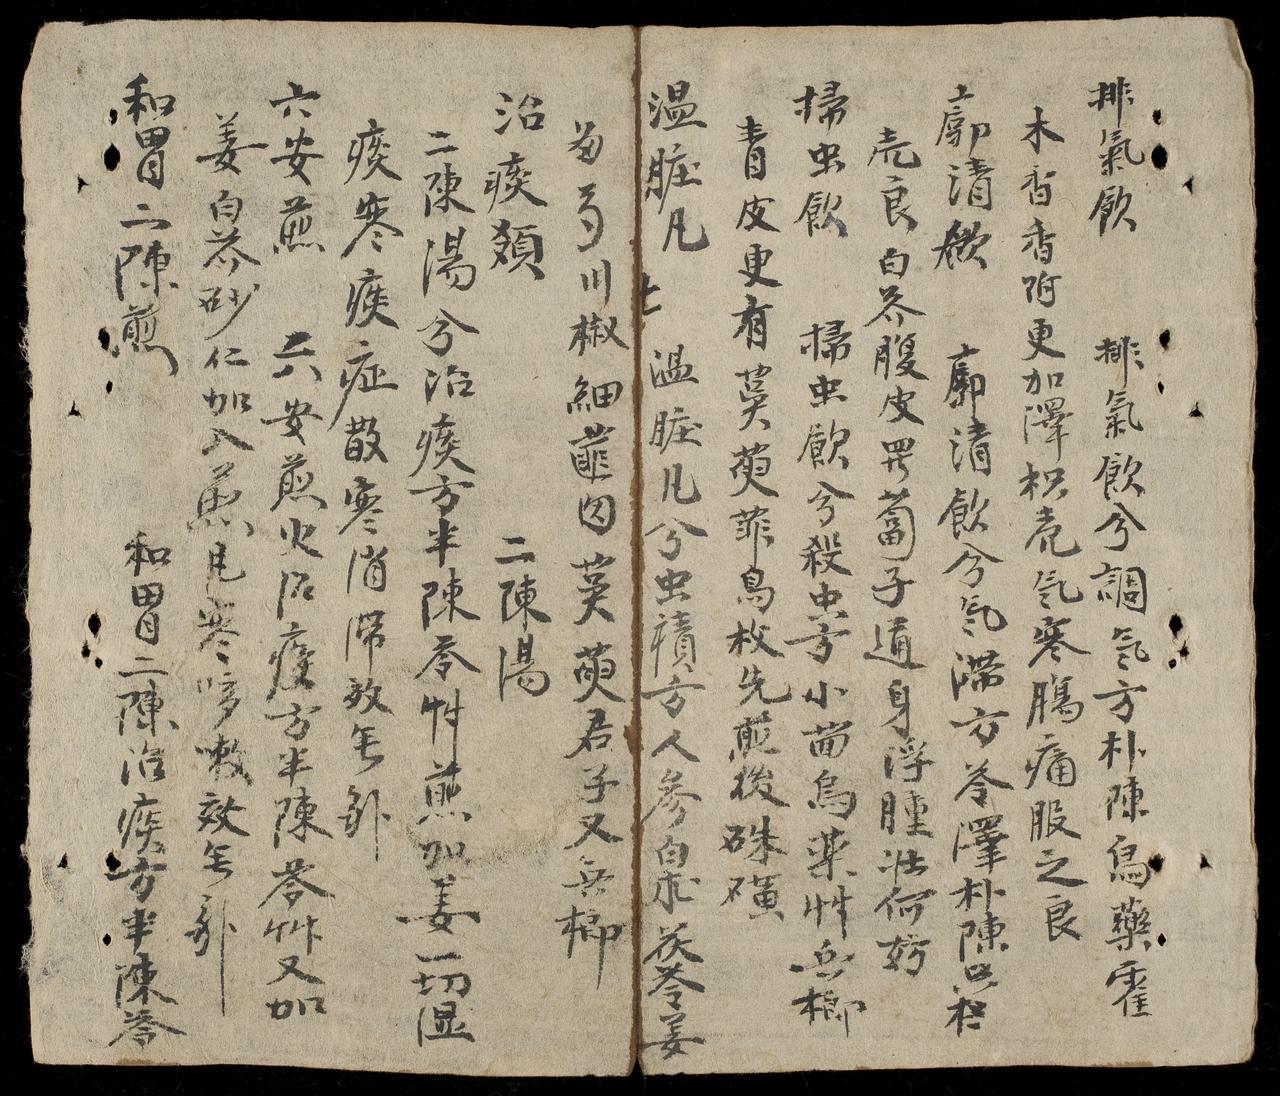 排氣飲　排氣飲兮調気方朴陳烏藥霍
木香香附更加澤枳壳気寒膓痛服之良
廓清飲　廓清飲兮気滞方苓澤朴陳只枳
壳良白芥腹皮蔔子道身浮腫壮何妨
掃虫飲　掃虫飲兮殺虫方小茴烏薬艸兵榔
青皮更有萸萸菲烏枚先煎後硃磺
温脏凡　七　温脏凡兮虫積方人參白朮茯苓姜
芍川椒細菲囟萸萸君子又兵榔
治痰類　二陳湯
二陳湯兮治痰方半陳苓艸煎加姜一切湿
痰寒痰症散寒消滞效無卦
六安煎　六安煎火治痰方半陳苓艸又加
姜白芥砂仁加入煎凡寒哆嗽效無卦
和胃二陳煎　和胃二陳治痰方半陳苓